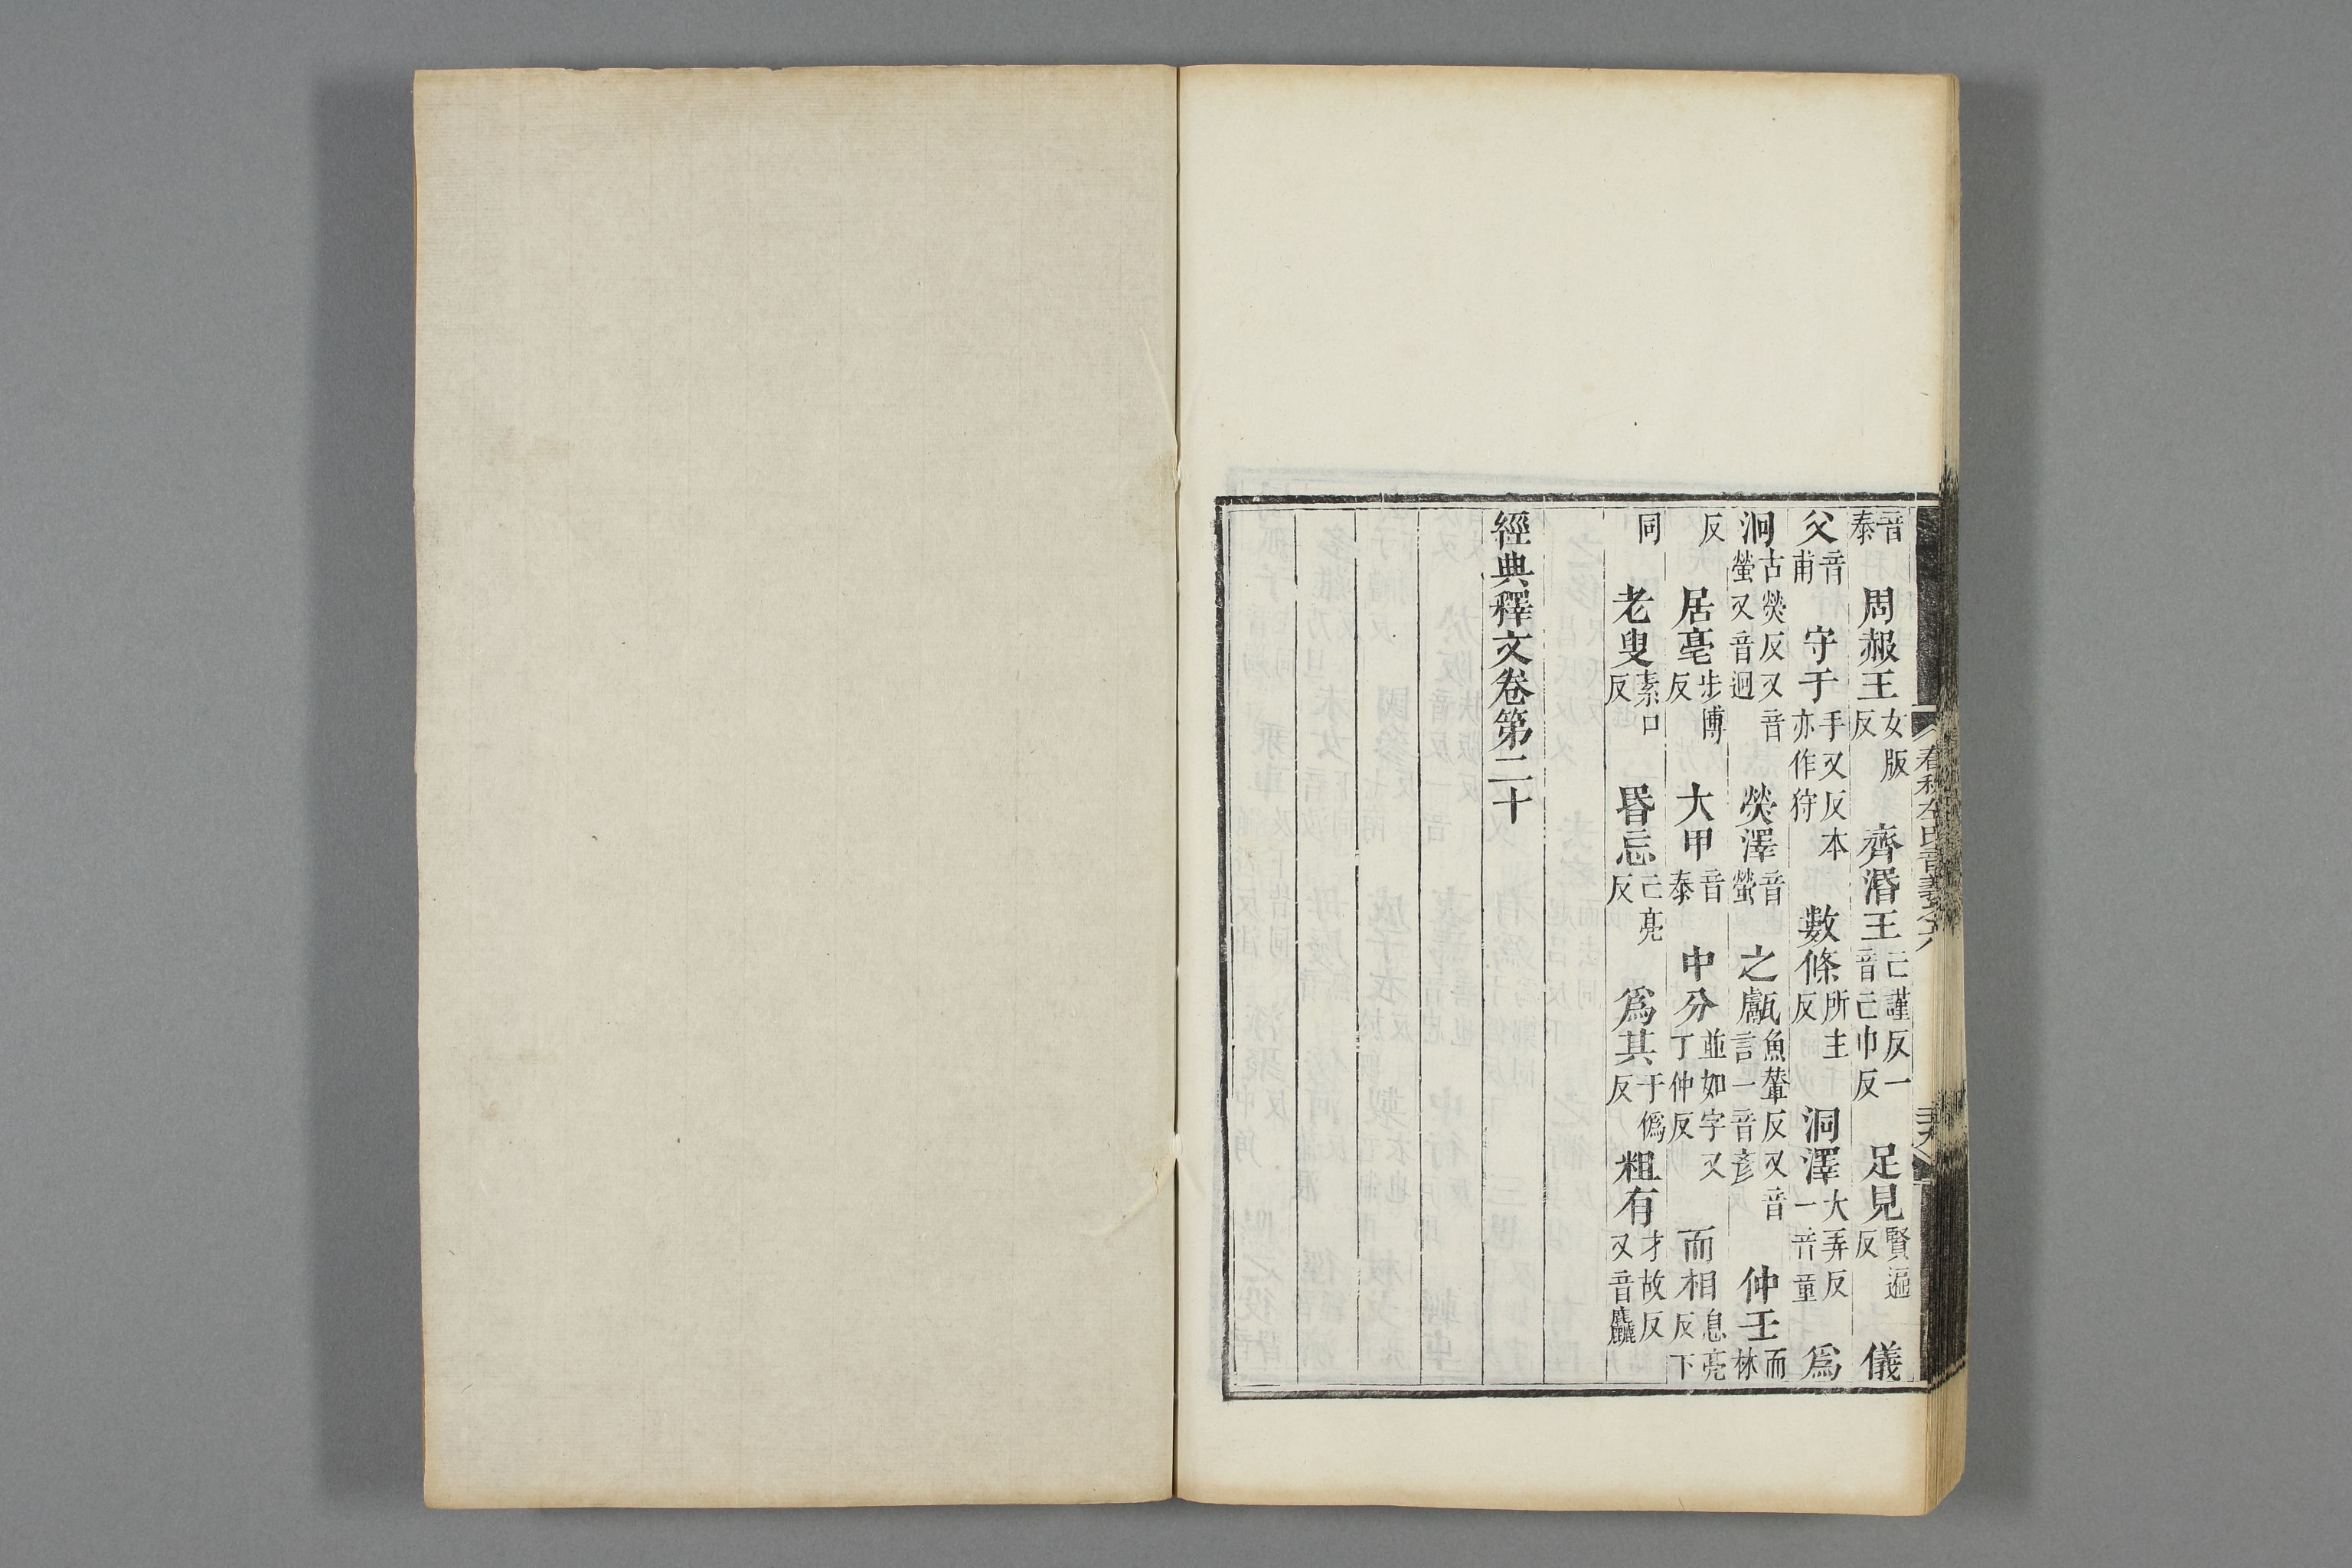 音泰　周赧王女版反　齊湣王亡謹反一音亡巾反　足見賢遍反　儀
父音甫　守于手又反本亦作狩　數條所主反　洞澤大弄反一音童　爲
泂古熒反又音螢又音迥　熒澤音螢　之甗魚輦反又音言一音彥　仲壬而林
反　居亳步博反　大甲音泰　中分並如字又丁仲反　而相息亮反下
同　老叟素口反　昬忘亡亮反　爲其于僞反　粗有才故反又音麤
經典釋文卷第二十
春秋左氏音義之六